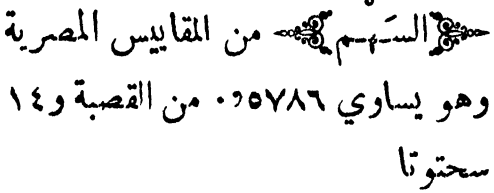 ﴿السَهم﴾ من المقاييس المصرية
وهو يساوي ٠٫٥٧٨٦ من القصبة و١٤
سحتوتا